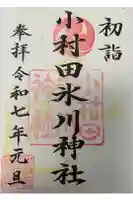 初詣
小村田氷川神社
奉拝令和七年元旦